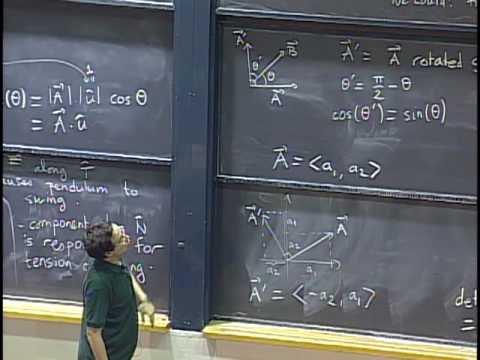 1
(θ) = |A⃗| |u⃗| cos θ
= A⃗ · û
= along T⃗
causes pendulum to
swing.
- component of N⃗
is respo for
tension
ng.
we could
A⃗' B⃗ A⃗' = A⃗ rotated
θ' θ θ' = π/2 - θ
A⃗ cos(θ') = sin(θ)
A⃗ = <a₁, a₂>
A⃗' a₁ A⃗
a₂
a₂ a₁
A⃗' = <-a₂, a₁>
det
=